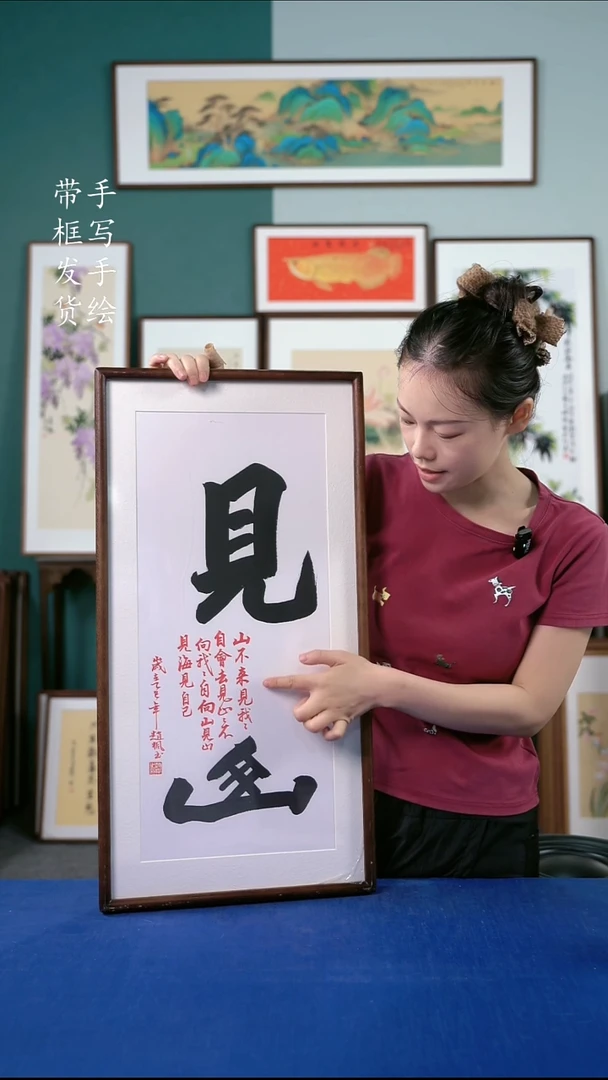 手写手绘
带框发货
見
山
山不来見我〻
自會去見山〻不
向我〻自向山見山
見海見自己
歲乙巳年